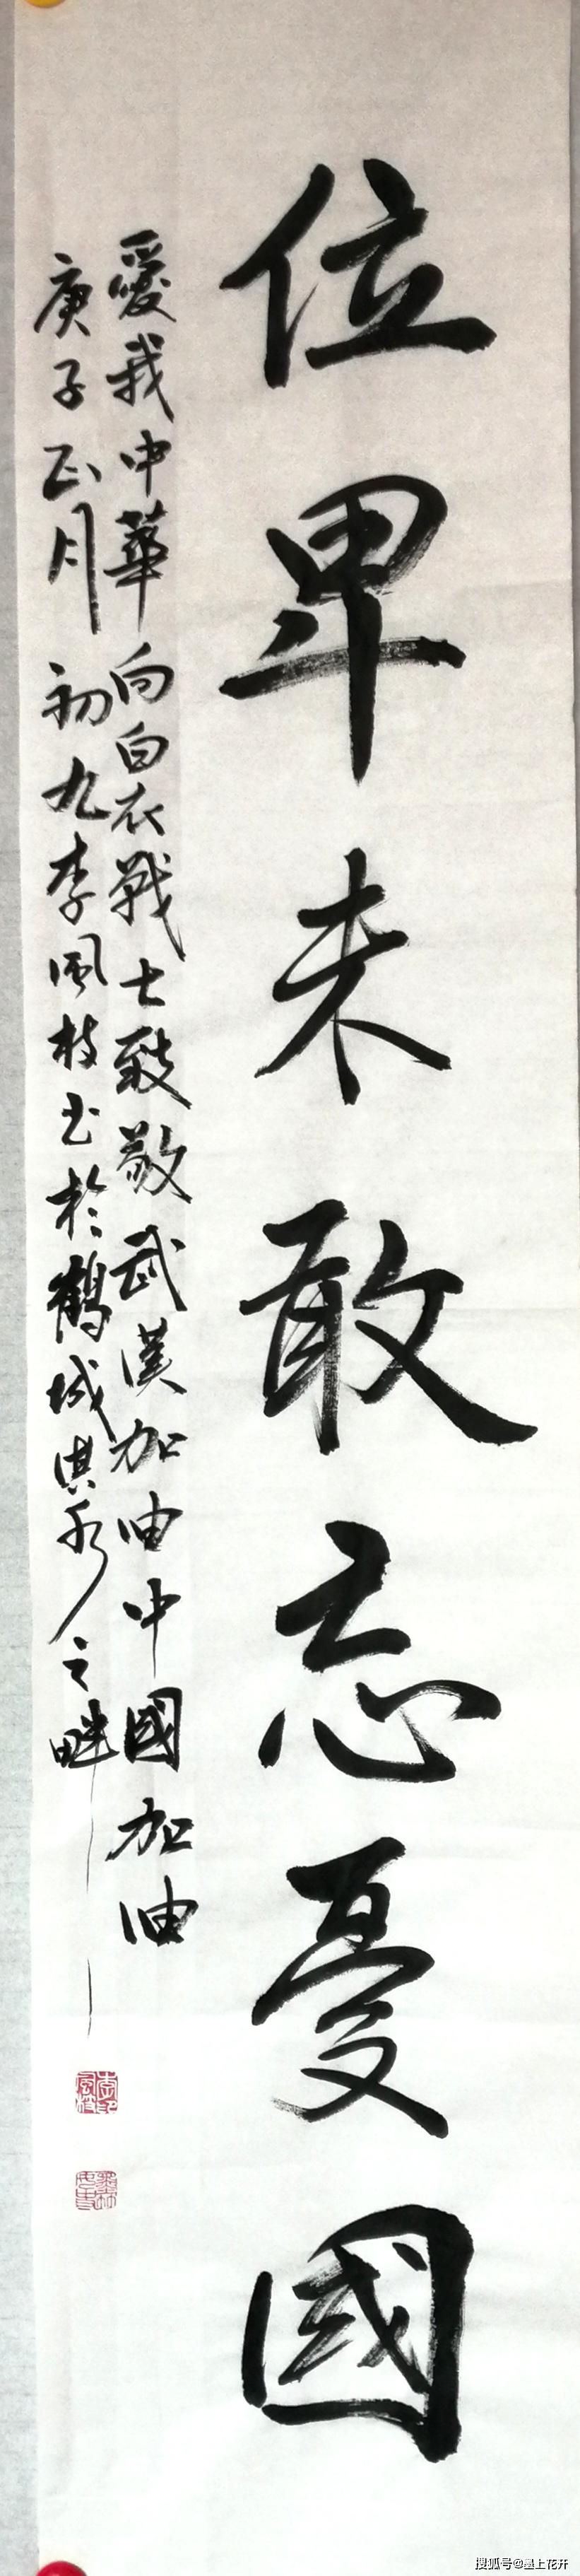 位卑未敢忘憂國
愛我中華向白衣戰士致敬武漢加油中國加油
庚子正月初九李風枝书於鶴城淇水之畔
李印風枝
搜狐号@墨上花开